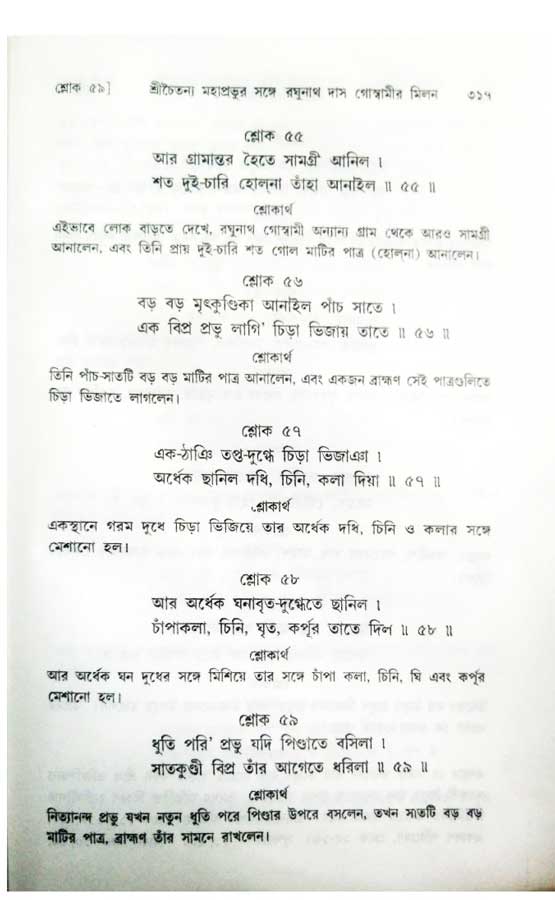 শ্লোক ৫৯]	শ্রীচৈতন্য মহাপ্রভুর সঙ্গে রঘুনাথ দাস গোস্বামীর মিলন	৩১৭
শ্লোক ৫৫
আর গ্রামান্তর হৈতে সামগ্রী আনিল ।
শত দুই-চারি হোল্‌না তাঁহা আনাইল ॥ ৫৫ ॥
শ্লোকার্থ
এইভাবে লোক বাড়তে দেখে, রঘুনাথ গোস্বামী অন্যান্য গ্রাম থেকে আরও সামগ্রী
আনালেন, এবং তিনি প্রায় দুই-চারি শত গোল মাটির পাত্র (হোল্‌না) আনালেন।
শ্লোক ৫৬
বড় বড় মৃৎকুণ্ডিকা আনাইল পাঁচ সাতে ।
এক বিপ্র প্রভু লাগি' চিড়া ভিজায় তাতে ॥ ৫৬ ॥
শ্লোকার্থ
তিনি পাঁচ-সাতটি বড় বড় মাটির পাত্র আনালেন, এবং একজন ব্রাহ্মণ সেই পাত্রগুলিতে
চিড়া ভিজাতে লাগলেন।
শ্লোক ৫৭
এক-ঠাঞি তপ্ত-দুগ্ধে চিড়া ভিজাঞা ।
অর্ধেক ছানিল দধি, চিনি, কলা দিয়া ॥ ৫৭ ॥
শ্লোকার্থ
একস্থানে গরম দুধে চিড়া ভিজিয়ে তার অর্ধেক দধি, চিনি ও কলার সঙ্গে
মেশানো হল।
শ্লোক ৫৮
আর অর্ধেক ঘনাবৃত-দুগ্ধেতে ছানিল ।
চাঁপাকলা, চিনি, ঘৃত, কর্পূর তাতে দিল ॥ ৫৮ ॥
শ্লোকার্থ
আর অর্ধেক ঘন দুধের সঙ্গে মিশিয়ে তার সঙ্গে চাঁপা কলা, চিনি, ঘি এবং কর্পূর
মেশানো হল।
শ্লোক ৫৯
ধুতি পরি' প্রভু যদি পিণ্ডাতে বসিলা ।
সাতকুণ্ডী বিপ্র তাঁর আগেতে ধরিলা ॥ ৫৯ ॥
শ্লোকার্থ
নিত্যানন্দ প্রভু যখন নতুন ধুতি পরে পিণ্ডার উপরে বসলেন, তখন সাতটি বড় বড়
মাটির পাত্র, ব্রাহ্মণ তাঁর সামনে রাখলেন।